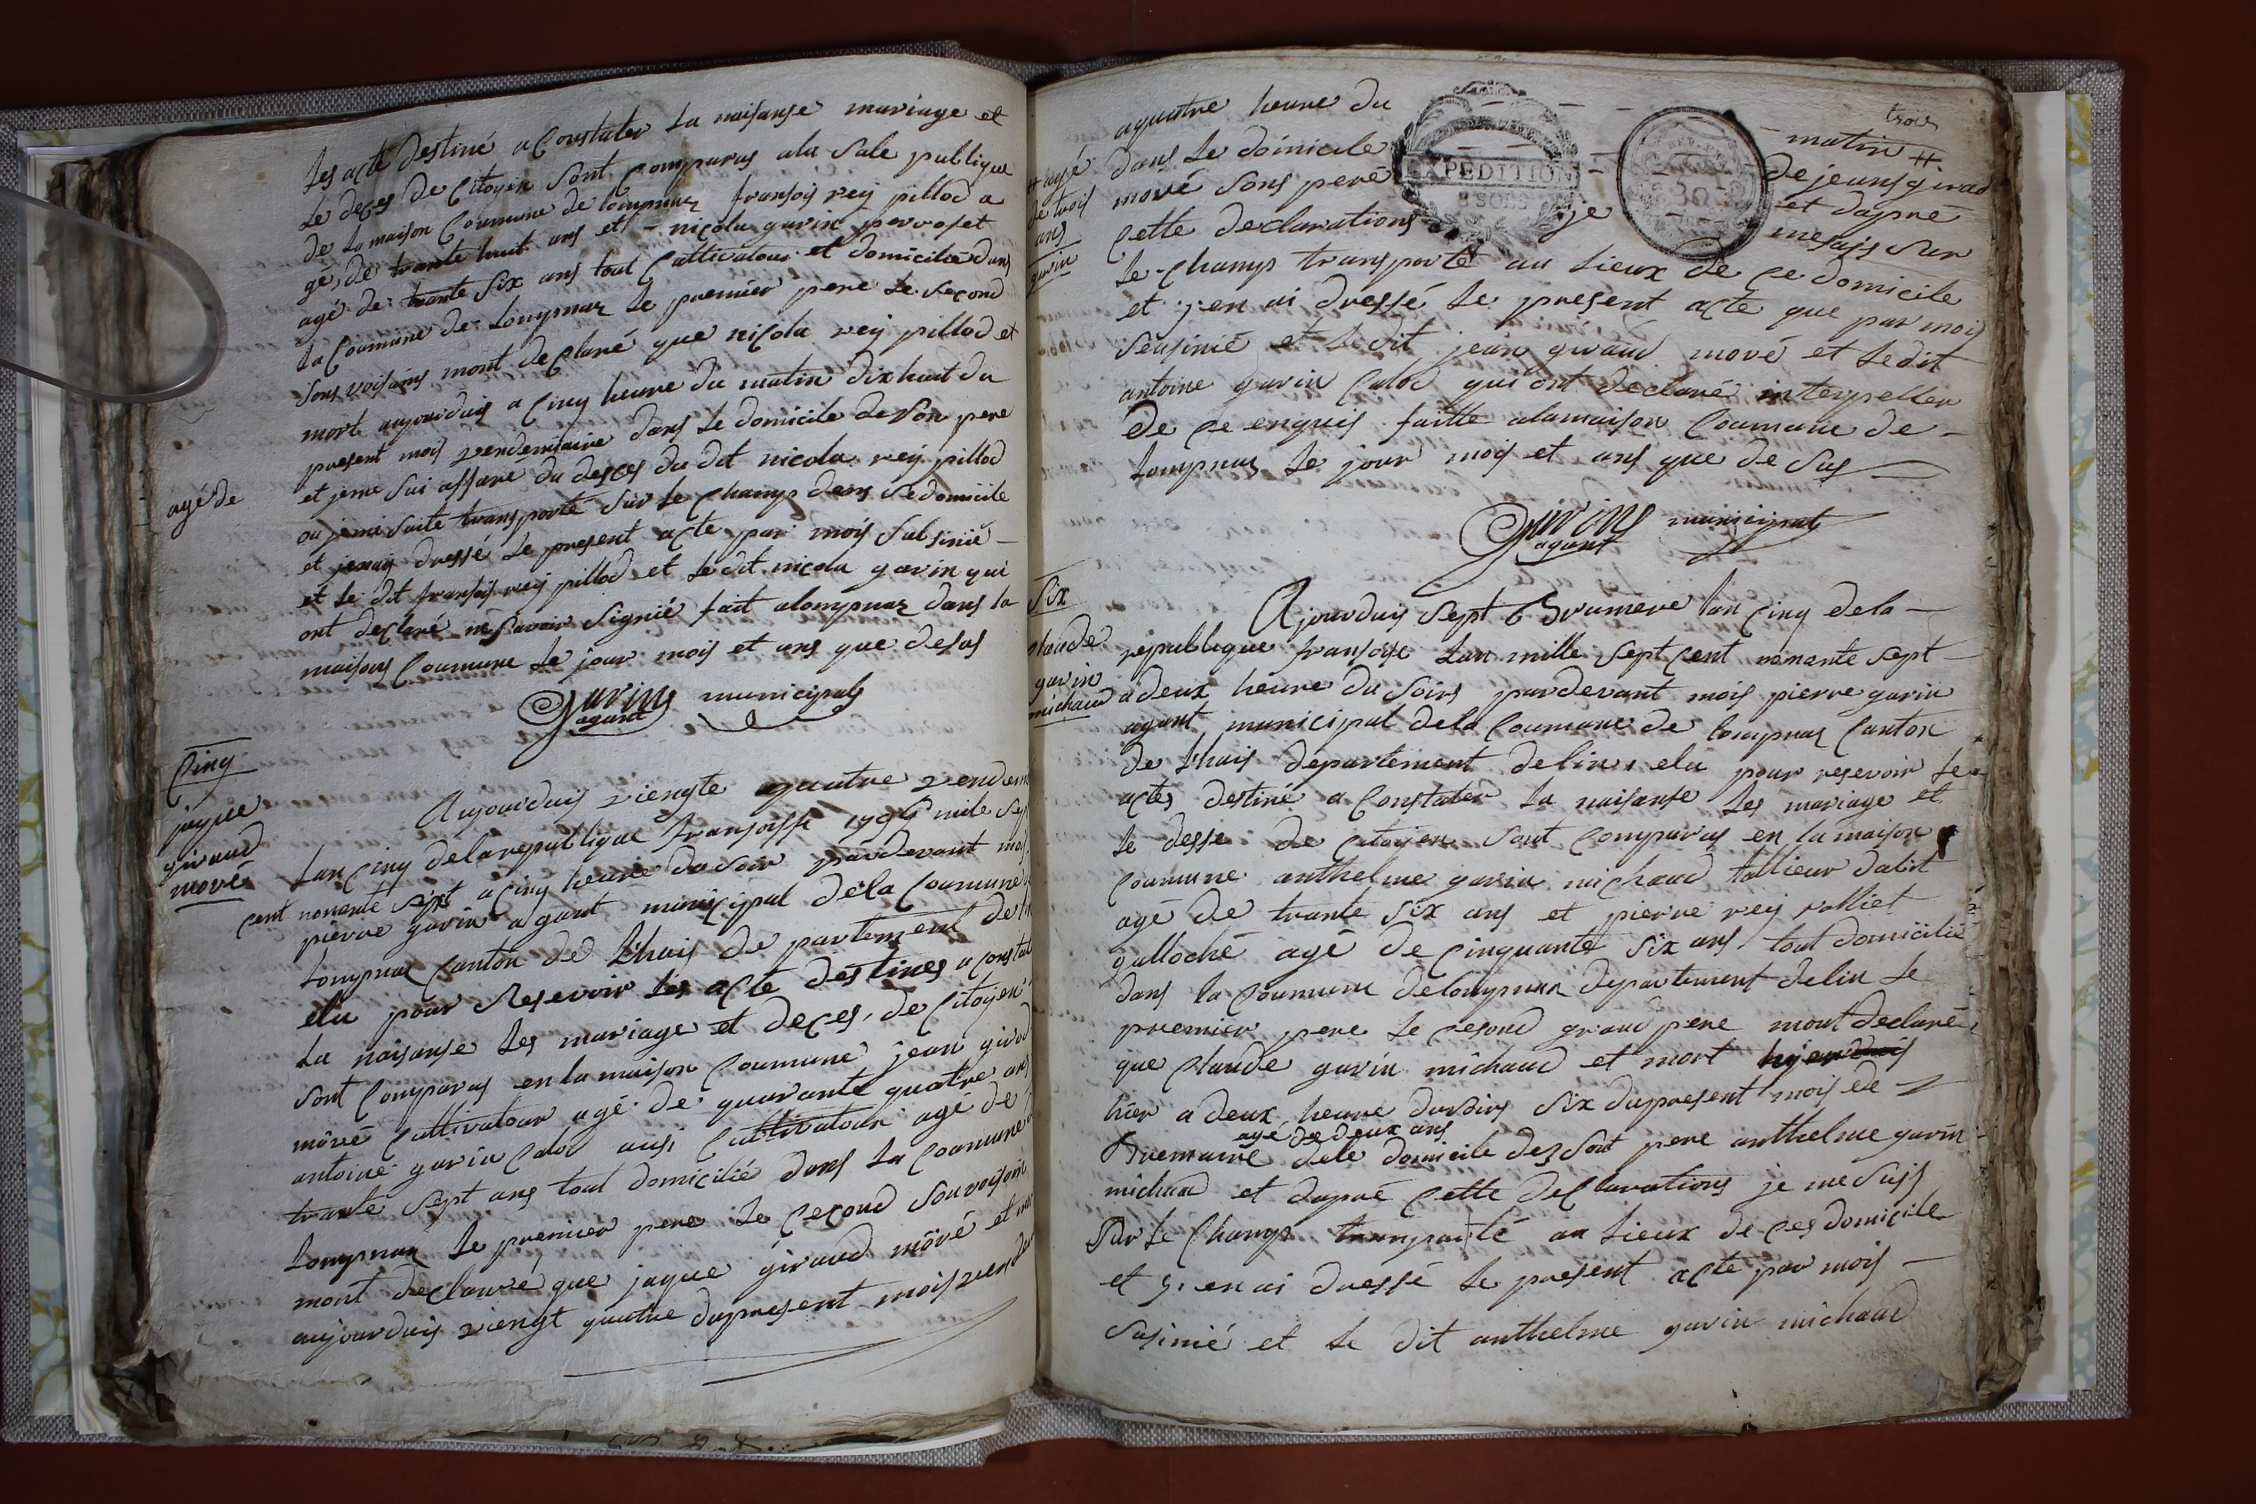 Les acte destiné a Constater La naisanse mariage et
Le deces de Citoyin sont Comparus ala Sale publique
de La maison Coumune de Lompnaz fransois rey pillod a
gé de trante huit ans et - nicola gavin perroset
agé de trante six ans tout Cultivatour et domicilié dans
La Coumune de Lompnaz Le premier pere Le second
sons voisains mont declaré que nicola rey pillod et
mort aujourduis a Cinq heure du matin dixhuit du
present mois vendemiaire dans Le domicile de son pere
et jeme sui assure du desces du dit nicola rey pillod
agé de
ou jemi suite transporté sur Le Champs dans sedomicile
et jenais dressé Le present acte par mois subsinié -
et Le dit fransois rey pillod et Le dit nicola gavin qui
ont declaré ne savoir signié fait alompnaz dans la
maisons Coumune Le jour mois et ans que desus
Gavin agant municipal
Cinq
jaque
giraud
mové
Aujourduis viengte quatre vendem
Lan Cinq delarepublique fransoisse 1796 mile sep
cent nonante sept a Cinq heure du soir pardevant mois
pierre gavin agant municipal dela Coumune
Lompnaz Canton de Lhuis de partement de l
elu pour Resevoir Les acte destines a Constat
La naisanse Les mariage et deces, de Citoyen
sont Comparus en la maison Coumune jean girod
môvé Cultivatour agé de quarante quatre ans
antoine gavin Calod ausi Cultivatour agé de
trante sept ans tout domicilié dans La Coumune
Lompnaz Le premier pere Le Cecond son voisain
mont declauré que jaque giraud môvé et mor
aujourduis viengt quatre dupresent mois vende
trois
aquatre heure du - matin #
# agé
de trois
ans
gavin
dans Le domicile de jeans giraud
mové sons peré et dapré
Cette declarations je mesuis sur
EXPEDITION
8 SOLS
Le Champs transporté au Lieux de Ce domicile
et j'en ai dressé Le present acte que par mois
seusinié et Le dit jean giraud mové et Le dit
antoine gavin Calod qui ont declaré interpeller
de Ce enquis faitte alamaison Coumune de -
Lompnaz Le jour mois et ans que de sus
Gavin agant municipal
Six
Claude
gavin
michaud
Ajourduis sept Brumere lan Cinq dela -
republique fransoise Lan mille sept Cent nonante sept -
a deux heure du soirs pardevant mois pierre gavin
agant municipal dela Coumune de Lompnaz Canton
de Lhuis departement delin, elu pour resevoir Les
actes destiné a Constater La naisanse Les mariage et
Le desse de Citoyen sont Comparus en la maison
Coumune anthelme gavin michaud tallieur dabit
agé de trante six ans et pierre rey rolliet
galloché agé de Cinquante six ans tout domicilié
dans la Coumune delompnaz departement delin Le
premier pere Le Cesond grand pere mont declaré
que Claude gavin michaud et mort hierduis
hier a deux heure dusoirs six dupresent mois de
agé de deux ans
Bruemaire dele domicile des sont pere anthelme gavin
michaud et dapré Cette declarations je me suis
sur Le Champs transporté au Lieux de Ces domicile
et j'en ai dressé Le present acte par mois -
susinié et Le dit anthelme gavin michaud